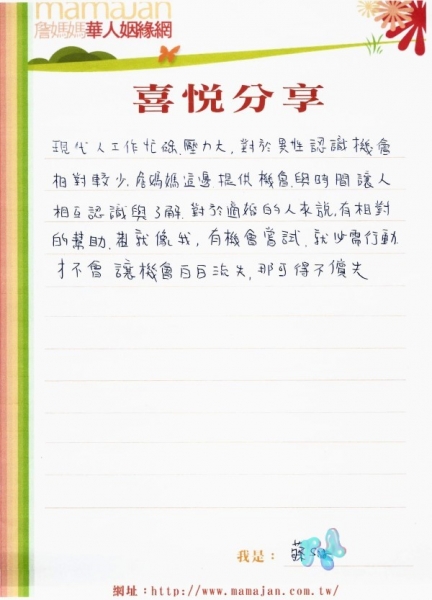 mamajan
詹媽媽華人姻緣網
喜悅分享
現代人工作忙碌,壓力大,對於異性認識機會
相對較少,詹媽媽這邊提供機會與時間讓人
相互認識與了解,對於適婚的人來說,有相對
的幫助,就像我,有機會嘗試,就必需行動
才不會讓機會白白流失,那可得不償失
我是:蘇
網址:http://www.mamajan.com.tw/